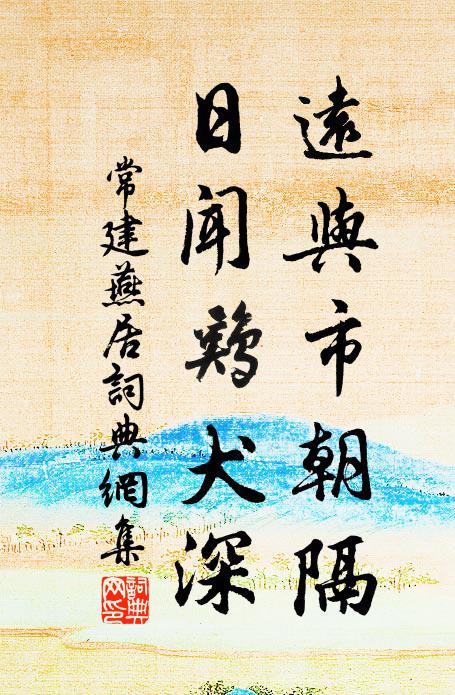 遠與市朝隔
日聞鷄犬深
常建燕居詞典網集
詞典
网印